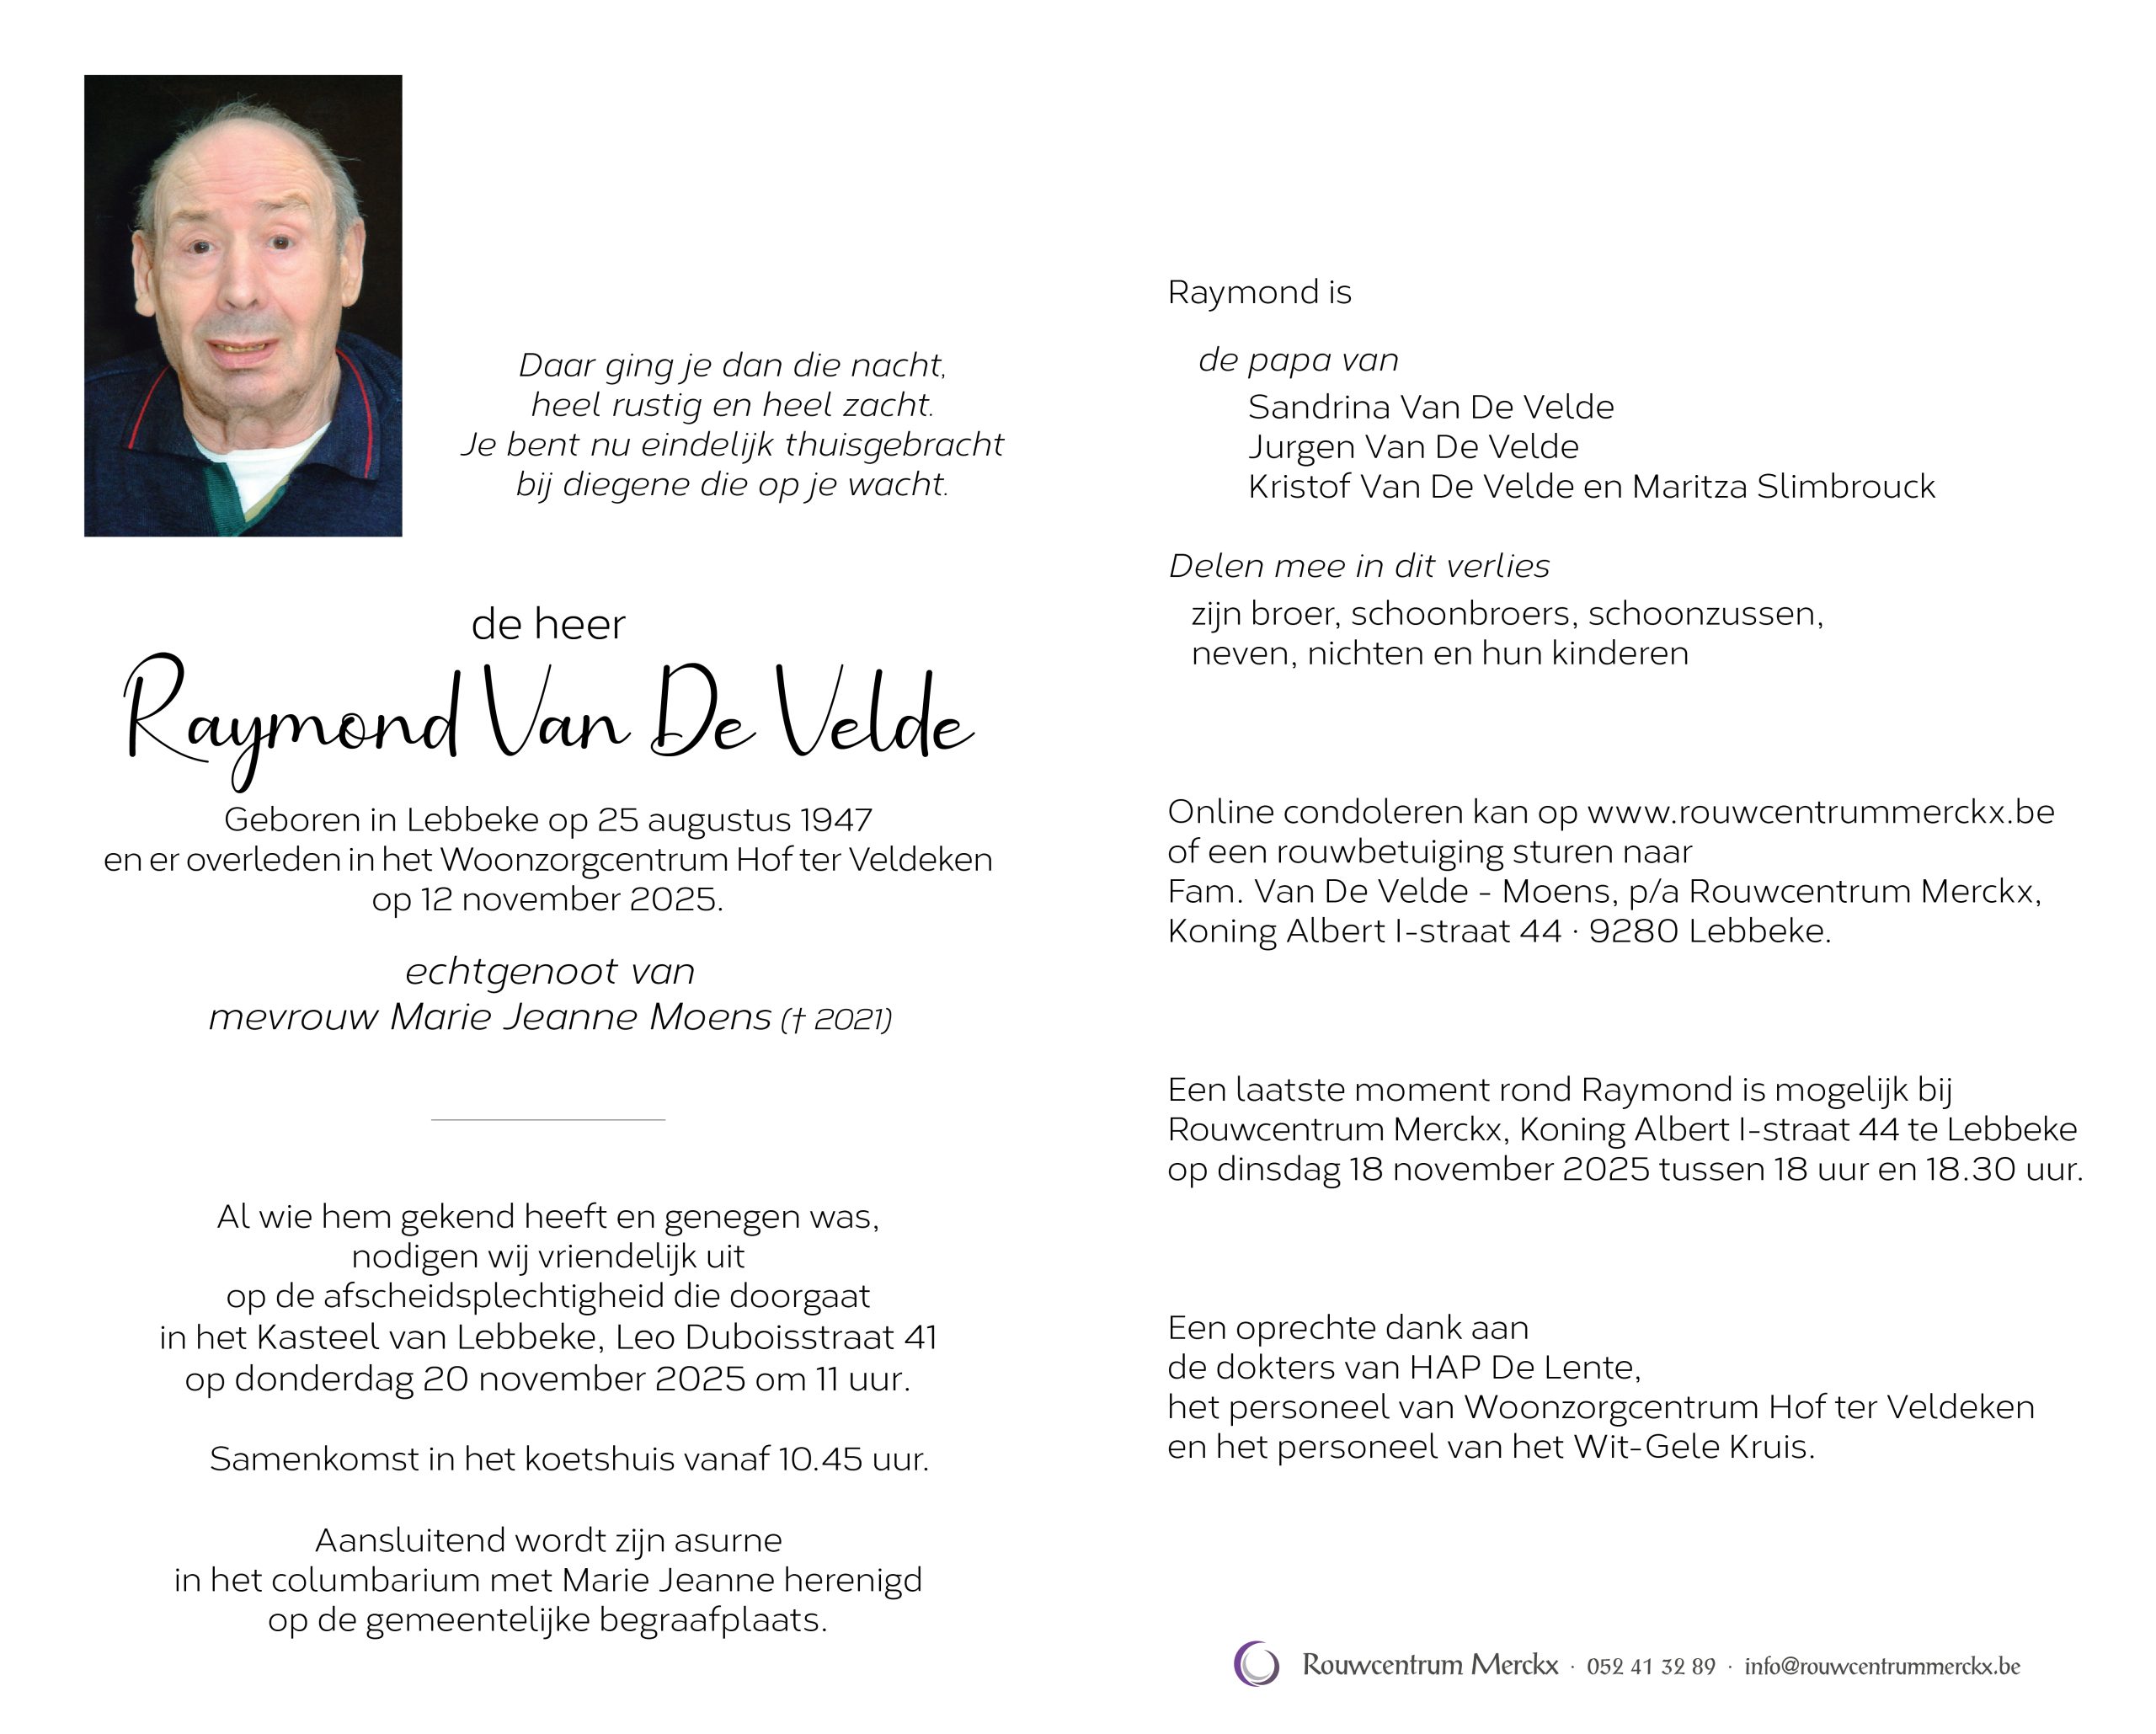 Daar ging je dan die nacht,
heel rustig en heel zacht.
Je bent nu eindelijk thuisgebracht
bij diegene die op je wacht.
de heer
Raymond Van De Velde
Geboren in Lebbeke op 25 augustus 1947
en er overleden in het Woonzorgcentrum Hof ter Veldeken
op 12 november 2025.
echtgenoot van
mevrouw Marie Jeanne Moens († 2021)
Al wie hem gekend heeft en genegen was,
nodigen wij vriendelijk uit
op de afscheidsplechtigheid die doorgaat
in het Kasteel van Lebbeke, Leo Duboisstraat 41
op donderdag 20 november 2025 om 11 uur.
Samenkomst in het koetshuis vanaf 10.45 uur.
Aansluitend wordt zijn asurne
in het columbarium met Marie Jeanne herenigd
op de gemeentelijke begraafplaats.
Raymond is
de papa van
Sandrina Van De Velde
Jurgen Van De Velde
Kristof Van De Velde en Maritza Slimbrouck
Delen mee in dit verlies
zijn broer, schoonbroers, schoonzussen,
neven, nichten en hun kinderen
Online condoleren kan op www.rouwcentrummerckx.be
of een rouwbetuiging sturen naar
Fam. Van De Velde - Moens, p/a Rouwcentrum Merckx,
Koning Albert I-straat 44 · 9280 Lebbeke.
Een laatste moment rond Raymond is mogelijk bij
Rouwcentrum Merckx, Koning Albert I-straat 44 te Lebbeke
op dinsdag 18 november 2025 tussen 18 uur en 18.30 uur.
Een oprechte dank aan
de dokters van HAP De Lente,
het personeel van Woonzorgcentrum Hof ter Veldeken
en het personeel van het Wit-Gele Kruis.
Rouwcentrum Merckx · 052 41 32 89 · info@rouwcentrummerckx.be